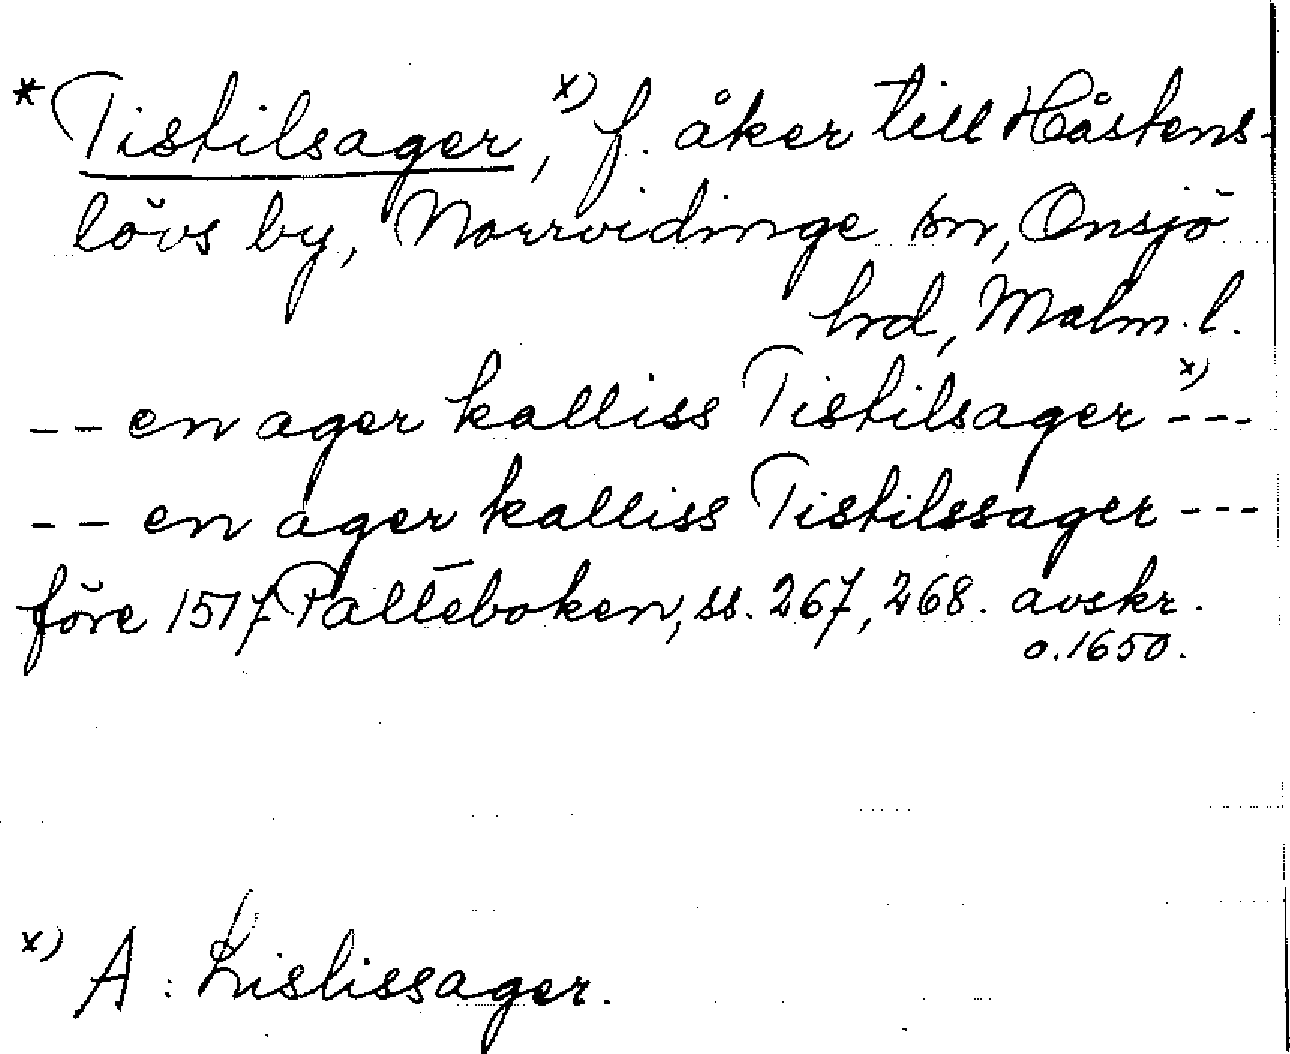 * Tistilsager, x) f. åker till Håstens-
lövs by, Norrvidinge sn, Onsjö
hrd, Malm. l.
-- en ager kalliss Tistilsager x) ---
-- en ager kalliss Tistilssager ---
före 1517 Palteboken, ss. 267, 268. avskr.
o. 1650.
x) A: Listissager.